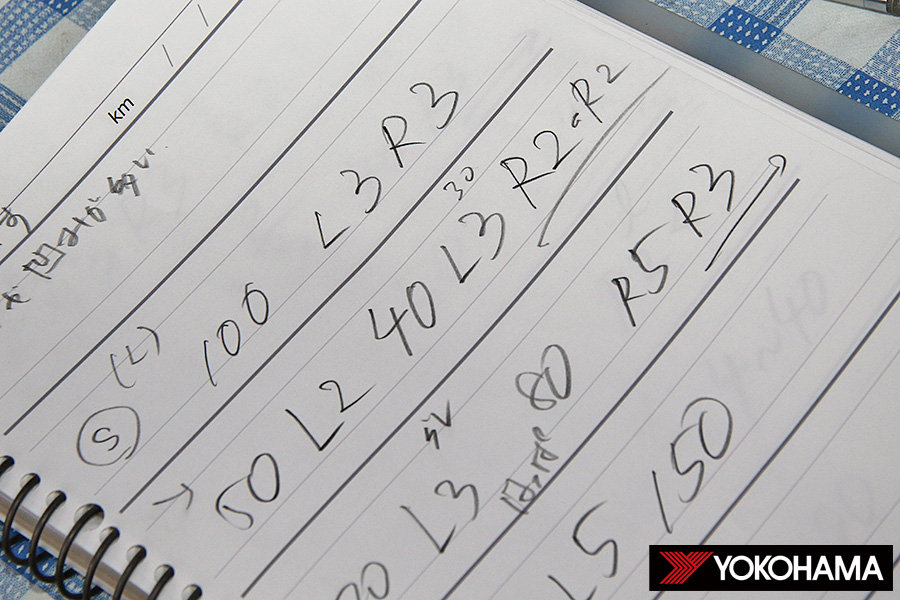 km
(L)
S 100 L3 R3
30
→ 50 L2 40 L3 R2 R2
L3 80 R5 R3
L5 150
YOKOHAMA